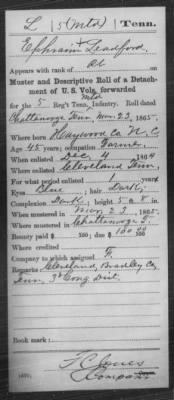 L | 5 (Mtd) | Tenn.
Ephraim Leadford.
Appears with rank of
Muster and Descriptive Roll of a Detach-
ment of U. S. Vols. forwarded
Mtd
for the 5 Reg't Tenn. Infantry. Roll dated
Chattanooga Tenn Mar. 23, 1865.
Where born Haywood Co N.C.
Age 45 years; occupation Farmer
When enlisted Dec 4, 1864
Where enlisted Cleveland Tenn
For what period enlisted 1 years
Eyes Blue; hair Dark;
Complexion Dark; height 5 ft. 8 in.
When mustered in Mar 23, 1865.
Where mustered in Chattanooga T.
Bounty paid $ 100; due $ 100 00/100
Where credited
Company to which assigned F.
Remarks: Cleveland, Bradley Co,
Tenn, 3d Cong Dist.
Book mark:
Jones
Copyist.